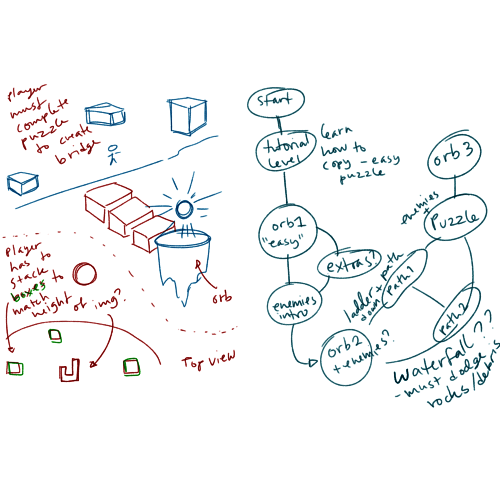 player
must
complete
puzzle
to create
bridge
player
has to
stack
boxes to
match
height of img?
orb
Top view
start
tutorial
level
learn
how to
copy - easy
puzzle
orb1
"easy"
extras?
enemies
intro
orb2
+ enemies?
ladder + path
down
path1
path2
enemies
+
Puzzle
orb3
waterfall??
- must dodge
rocks/debris